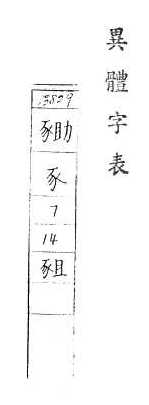 異體字表
13829
豵
豕
7
14
豠